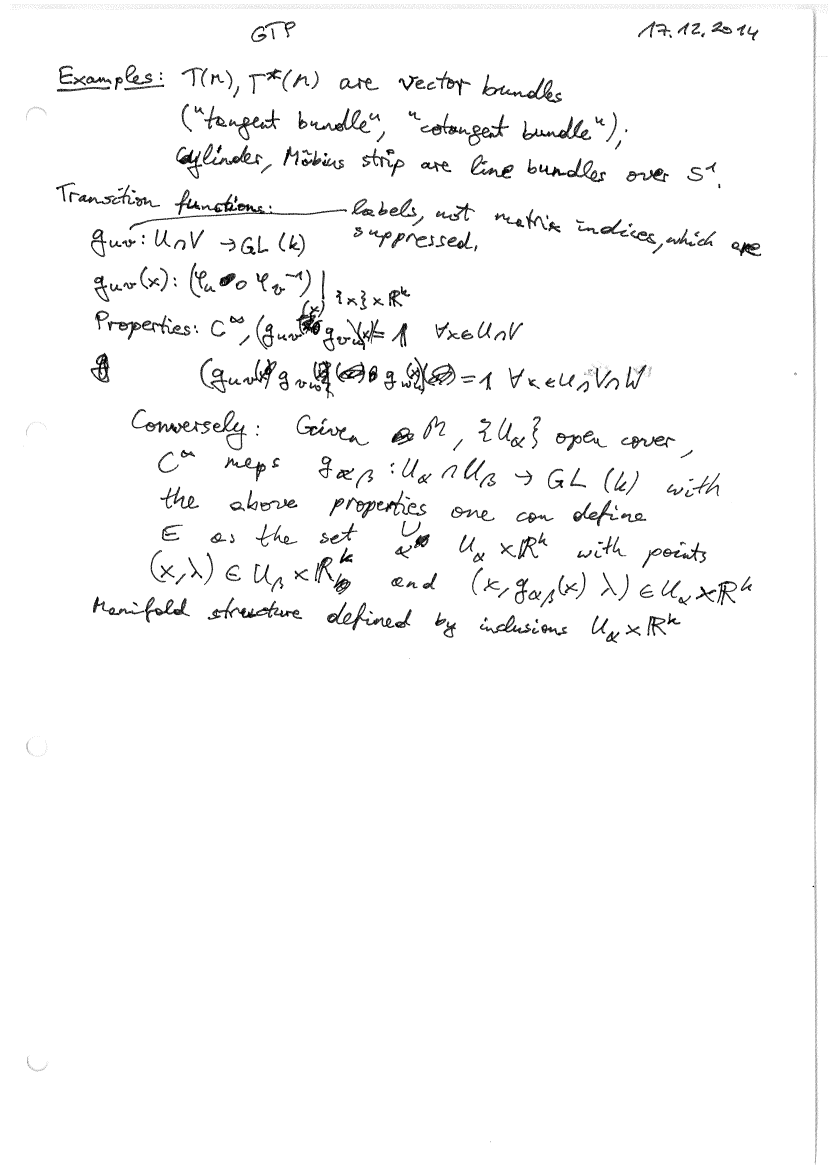 GTP 17.12.2014
Examples: T(M), T*(M) are vector bundles
("tangent bundle", "cotangent bundle");
Cylinder, Möbius strip are line bundles over S¹.
Transition functions: labels, not matrix indices, which are
g_{UV} : U∩V → GL(k) suppressed.
g_{UV}(x) : (φ_U ∘ φ_V⁻¹)|_{{x}×ℝᵏ}
Properties: C^∞, (g_{UV}(x) g_{VU})(x) = 1 ∀x∈U∩V
(g_{UV}(x) g_{VW} g_{WU}(x)) = 1 ∀x∈U∩V∩W
Conversely: Given M, {U_α} open cover,
C^∞ maps g_{αβ} : U_α ∩ U_β → GL(k) with
the above properties one can define
E as the set ∪_α U_α × ℝᵏ with points
(x, λ) ∈ U_β × ℝᵏ and (x, g_{αβ}(x) λ) ∈ U_α × ℝᵏ
Manifold structure defined by inclusions U_α × ℝᵏ